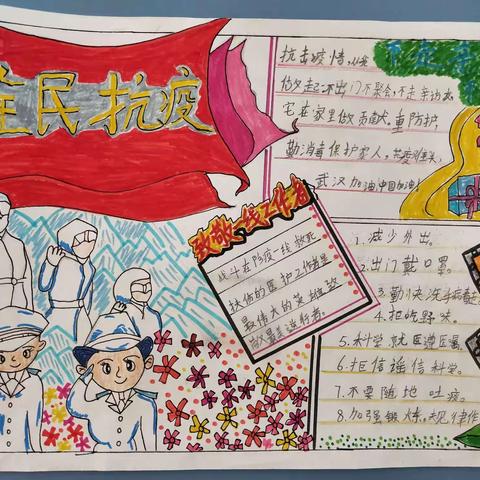 全民抗疫
抗击疫情,从我
做起,不出门不聚会,不走亲访友
宅在家里做贡献。重防护,
勤消毒保护家人,共渡难关,
武汉加油,中国加油!
致敬一线工作者
战斗在防疫一线救死
扶伤的医护工作者是
最伟大的英雄
做最美逆行者。
1.减少外出。
2.出门戴口罩。
3.勤洗手
4.拒吃野味。
5.科学就医遵医嘱。
6.拒信谣信科学。
7.不要随地吐痰。
8.加强锻炼,规律作